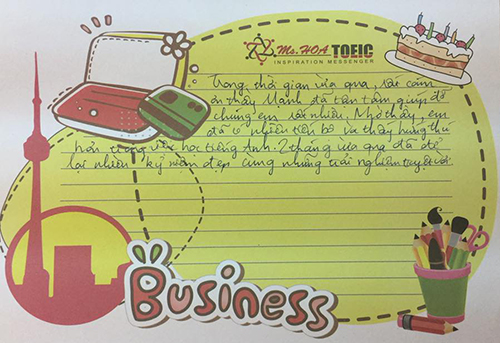 Ms. HOA TOEIC
INSPIRATION MESSENGER
Trong thời gian vừa qua, rất cảm
ơn thầy Mạnh đã tận tâm giúp đỡ
chúng em rất nhiều. Nhờ thầy, em
đã có nhiều tiến bộ và thấy hứng thú
hơn trong việc học tiếng Anh. 2 tháng vừa qua đã để
lại nhiều kỷ niệm đẹp cùng những trải nghiệm tuyệt vời.
Business